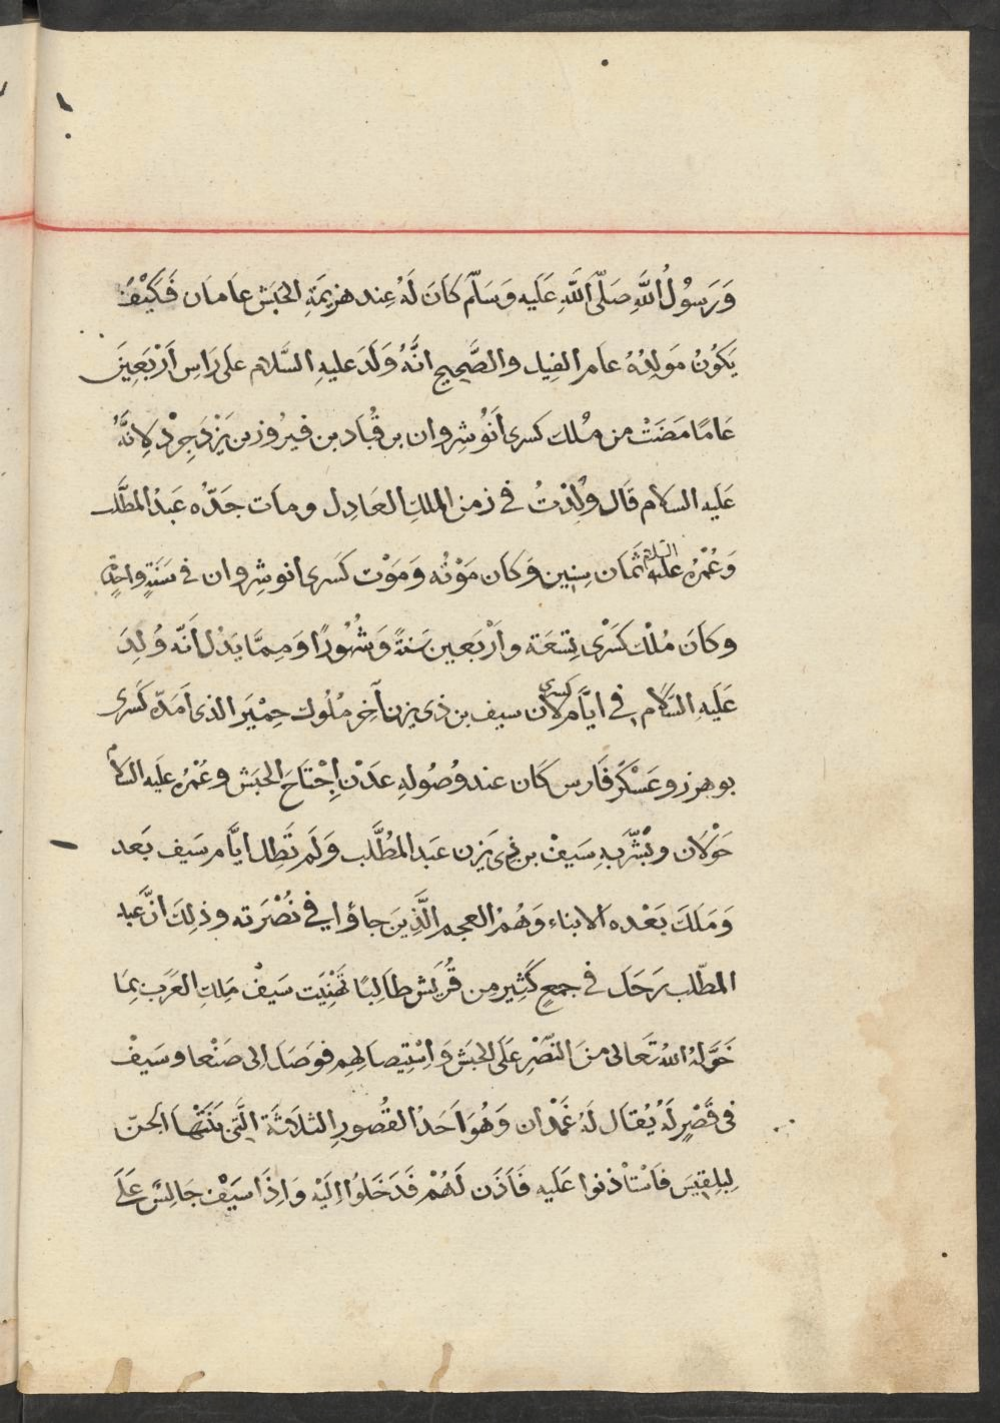 وَرَسُوْلُ اللَّهِ صَلَّى اللَّهِ عَلَيه وَسَلَّم كَانَ لَهُ عِند هزيمَةِ الحَبَش عامان فَكَيْفَ
يَكُوُنُ مَولِدُهُ عَام الفِيل والصَّحِيح انَّهُ وَلَدَ عليهِ السَّلام على رَاسِ اَرْبَعِينَ
عَامًا مَضَتْ من مُلك كسرى اَنُوشِروان بن قُباد بن فيرُوز بن يَزْدَجِرْد لِانَّهُ
عَلَيه السلام قَال وُلِدْتُ في زمن الملكِ العَادِل ومات جَدّه عَبدُ المطَّلب
وَعُمْرُه عليه السلام ثَمَان سِنِين وَكان مَوْتُه وَمَوْت كَسرى انوشِروان في سَنَةٍ واحِدَةٍ
وكَانَ مُلْك كَسَرْى تِسْعَة وارْبَعين سَنةً وَشُهُورًا وَمِمَّا يَدُل اَنّه وُلِدَ
عَلَيهِ السَّلَام في ايَّام كسرى لان سيف بن ذى يزن آخِر مُلُوك حِمْيَر الذى اَمَدّه كَسرى
بوهرز وعَسْكَر فَارس كَان عند وُصُولهِ عَدَن اِجْتَاحَ الحبَش وعُمْرُه عليه السلام
حَوْلَان وبُشّر بهِ سَيف بن ذى يَزن عَبد المُطَّلب وَلَم تَطِل ايَّام سَيف بَعد
وَمَلَكَ بَعْده الابناء وَهُمُ العجم الَّذِينَ جاؤا في نُصْرَته وذلِكَ انَّ عبد
المطّلب رَحَلَ في جمعٍ كَثِير مِن قُريَش طالِبًا تَهْنِيَت سَيفُ مَلِكِ العَرَب بِمَا
خَوَّلهُ اللهُ تَعَالى منَ النَّصْرِ عَلَى الحبَش وَاسْتِيصالِهِم فوَصَلَ الى صَنْعا وسَيفْ
فى قَصْرٍ لَهُ يُقَال لَهُ غَمْدان وَهُوَ اَحَدُ القُصورِ الثلاثَة الَّتى بَنَتْهَا الجنّ
لِبلِقِيَس فَاسْتَاْذنوا عَلَيه فَاَذَن لَهُمْ فَدَخَلُوا اِلَيْهِ وَاِذَا سَيْفٌ جَالِسٌ عَلَى